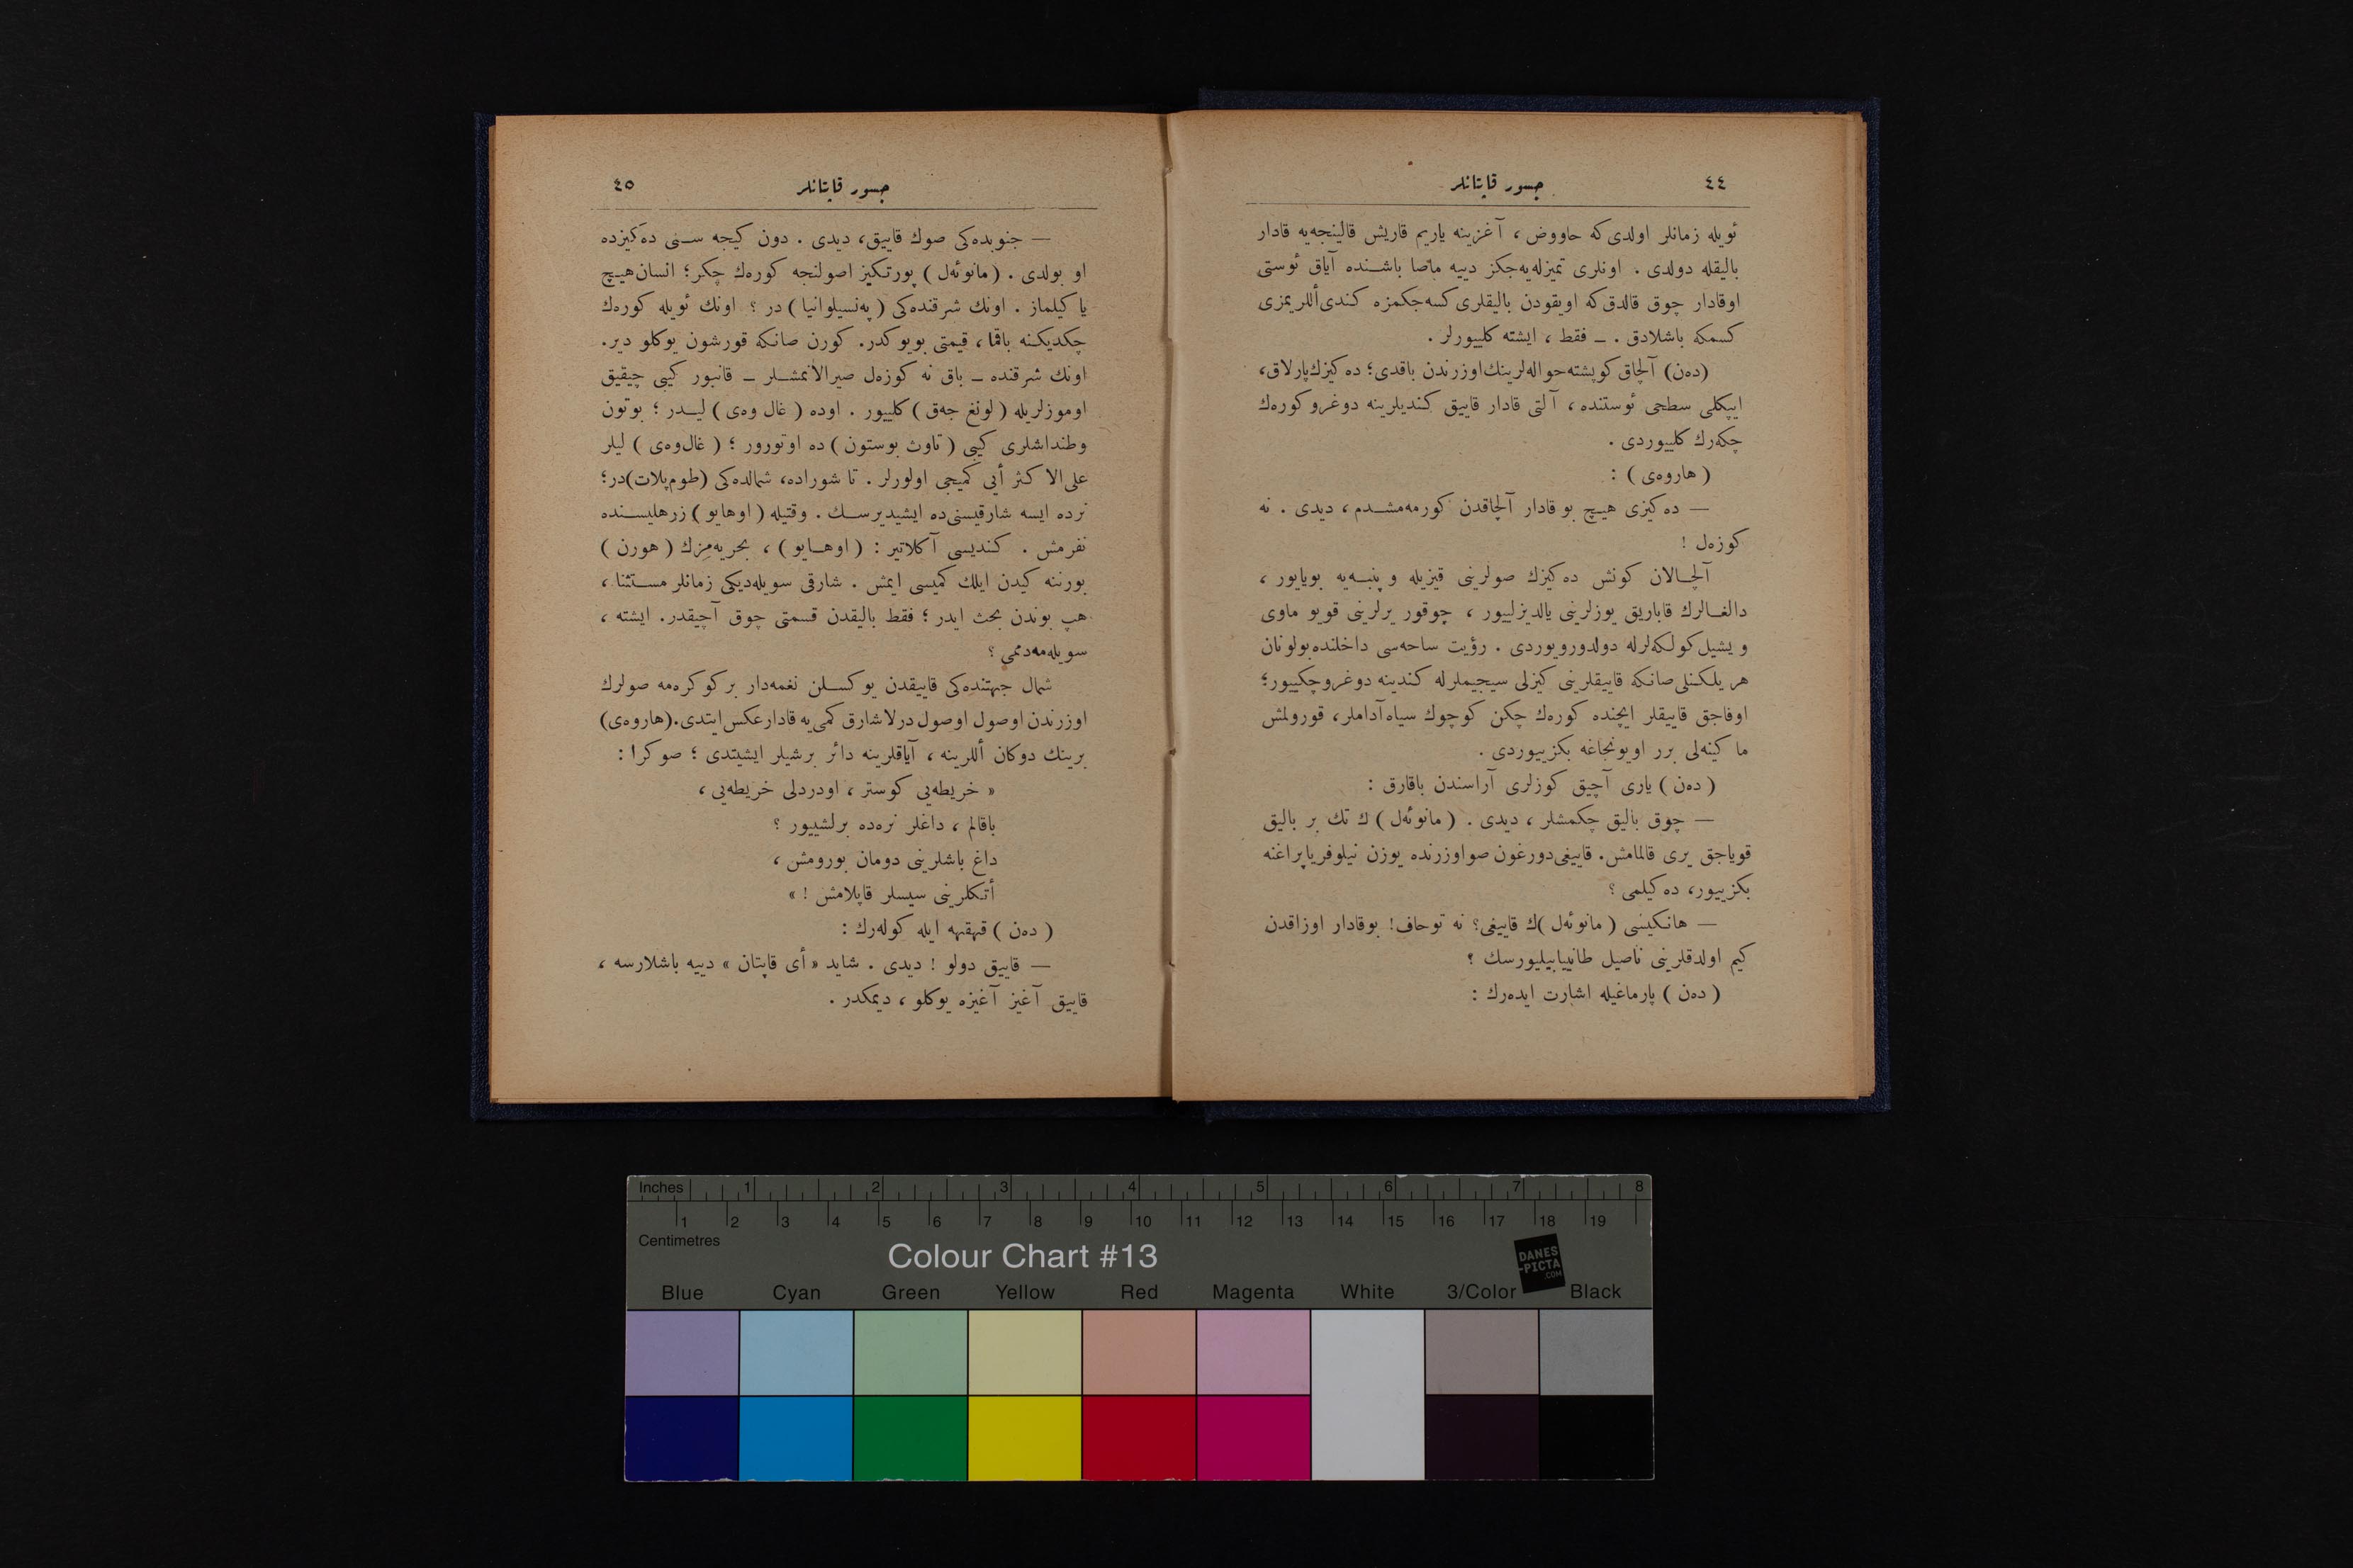 ٤٤
جسور قاپتانلر
ئویله زمانلر اولدی‌که حاووض ، آغزینه یاریم قاریش قالینجه‌یه قادار
بالیقله دولدی . اونلری تمیزله‌یه‌جکز دییه ماصا باشنده آیاق ئوستی
اوقادار چوق قالدق‌که اویقودن بالیقلری کسه‌جکمزه کندی أللریمزی
کسمکه باشلادق . ــ فقط ، ایشته کلییورلر .
(ده‌ن) آلچاق کوپشته حواله‌لرینك اوزرندن باقدی؛ ده‌کیزك پارلاق،
ایپکلی سطحی ئوستنده ، آلتی قادار قاییق کندیلرینه دوغرو کوره‌ك
چکه‌رك کلییوردی .
( هاروه‌ی ) :
— ده‌کیزی هیچ بو قادار آلچاقدن کورمه‌مشدم ، دیدی . نه
کوزه‌ل !
آلچالان کونش ده‌کیزك صولرینی قیزیله و پنبه‌یه بویایور ،
دالغالرك قاباریق یوزلرینی یالدیزلییور ، چوقور یرلرینی قویو ماوی
و یشیل کولکه‌لرله دولدورویوردی . رؤیت ساحه‌سی داخلنده بولونان
هر یلکنلی صانکه قاییقلرینی کیزلی سیجیملرله کندینه دوغرو چکییور؛
اوفاجق قاییقلر ایچنده کوره‌ك چکن کوچوك سیاه آداملر، قورولمش
ما کینه‌لی برر اویونجاغه بکزییوردی .
( ده‌ن ) یاری آچیق کوزلری آراسندن باقارق :
— چوق بالیق چکمشلر ، دیدی . ( مانوئه‌ل ) ك تك بر بالیق
قویاجق یری قالمامش. قاییغی دورغون صو اوزرنده یوزن نیلوفر یاپراغنه
بکزییور، ده‌کیلمی ؟
— هانکیسی ( مانوئه‌ل )ك قاییغی؟ نه توحاف! بوقادار اوزاقدن
کیم اولدقلرینی ناصیل طانییابیلیورسك ؟
( ده‌ن ) پارماغیله اشارت ایده‌رك :
جسور قاپتانلر
٤٥
— جنوبده‌کی صوك قاییق، دیدی . دون کیجه سنی ده‌کیزده
او بولدی . ( مانوئه‌ل ) پورتکیز اصولنجه کوره‌ك چکر؛ انسان هیچ
یا کیلماز . اونك شرقنده‌کی ( په‌نسیلوانیا ) در ؟ اونك ئویله کوره‌ك
چکدیکنه باقما ، قیمتی بویوکدر. کورن صانکه قورشون یوکلو دیر.
اونك شرقنده ــ باق نه کوزه‌ل صیرالانمشلر ــ قانبور کیبی چیقیق
اوموزلریله ( لونغ جه‌ق ) کلییور . اوده ( غال وه‌ی ) لیدر ؛ بوتون
وطنداشلری کیبی ( تاوث بوستون ) ده اوتورور ؛ ( غال‌وه‌ی ) لیلر
علی‌الا کثر أیی کمیجی اولورلر . تا شوراده، شمالده‌کی (طوم‌پلات)در؛
نرده ایسه شارقیسنی‌ده ایشیدیرسك . وقتیله ( اوهایو ) زرهلیسنده
نفرمش . کندیسی آکلاتیر : ( اوهایو ) ، بحریه‌مزك ( هورن )
بورننه کیدن ایلك کمیسی ایمش . شارقی سویله‌دیکی زمانلر مستثنا ،
هپ بوندن بحث ایدر ؛ فقط بالیقدن قسمتی چوق آچیقدر. ایشته ،
سویله‌مه‌دممی ؟
شمال جهتنده‌کی قاییقدن یوکسلن نغمه‌دار بر کوکره‌مه صولرك
اوزرندن اوصول اوصول درلاشارق کمی‌یه قادار عکس ایتدی.(هاروه‌ی)
برینك دوکان أللرینه ، آیاقلرینه دائر برشیلر ایشیتدی ؛ صوکرا :
« خریطه‌یی کوستر ، اودردلی خریطه‌یی ،
باقالم ، داغلر نره‌ده برلشییور ؟
داغ باشلرینی دومان بورومش ،
أتکلرینی سیسلر قاپلامش ! »
( ده‌ن ) قهقهه ایله کوله‌رك :
— قاییق دولو ! دیدی . شاید « أی قاپتان » دییه باشلارسه ،
قاییق آغیز آغیزه یوکلو ، دیمکدر .
Inches 1 2 3 4 5 6 7 8
1 2 3 4 5 6 7 8 9 10 11 12 13 14 15 16 17 18 19
Centimetres
Colour Chart #13
DANES
-PICTA
.COM
Blue Cyan Green Yellow Red Magenta White 3/Color Black